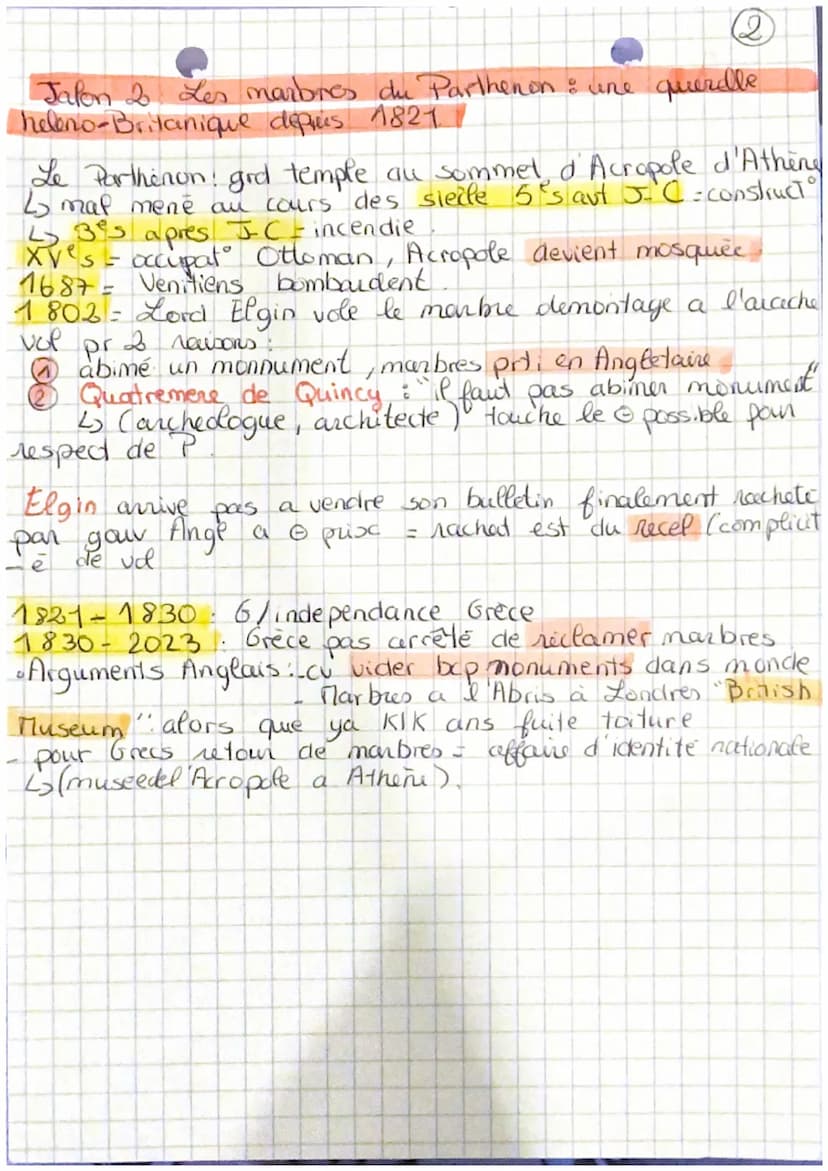 ②
Jalon 2 Les marbres du Parthenon : une querelle
heleno-Britanique depuis 1821
Le Parthénon : grd temple au sommet d'Acropole d'Athène
↳ mal mené au cours des siecle 5es avt J-C = construct°
↳ 3es apres J-C = incendie.
XVes = occupat° Ottoman, Acropole devient mosquée.
1687 = Venitiens bombardent.
1802 = Lord Elgin vole le marbre demontage a l'arache
vol pr 2 raisons :
① abimé un monnument, marbres prti en Angletaire
② Quatremere de Quincy : "il faut pas abimer monument"
↳ (archeologue, architecte) touche le ⊖ possible par
respect de P.
Elgin arrive pas a vendre son bulletin finalement racheté
par gouv Angl a ⊖ prix = rachat est du recel (complicit
-é de vol
1821-1830 : G/independance Grèce
1830-2023 : Grèce pas arrêté de réclamer marbres
• Arguments Anglais : - cv vider bcp monuments dans monde
- Marbres a l'Abris à Londres "British
Museum" : alors que ya KlK ans fuite toiture
- pour Grecs retour de marbres = affaire d'identité nationale
↳ (museedel'Acropole a Athène).